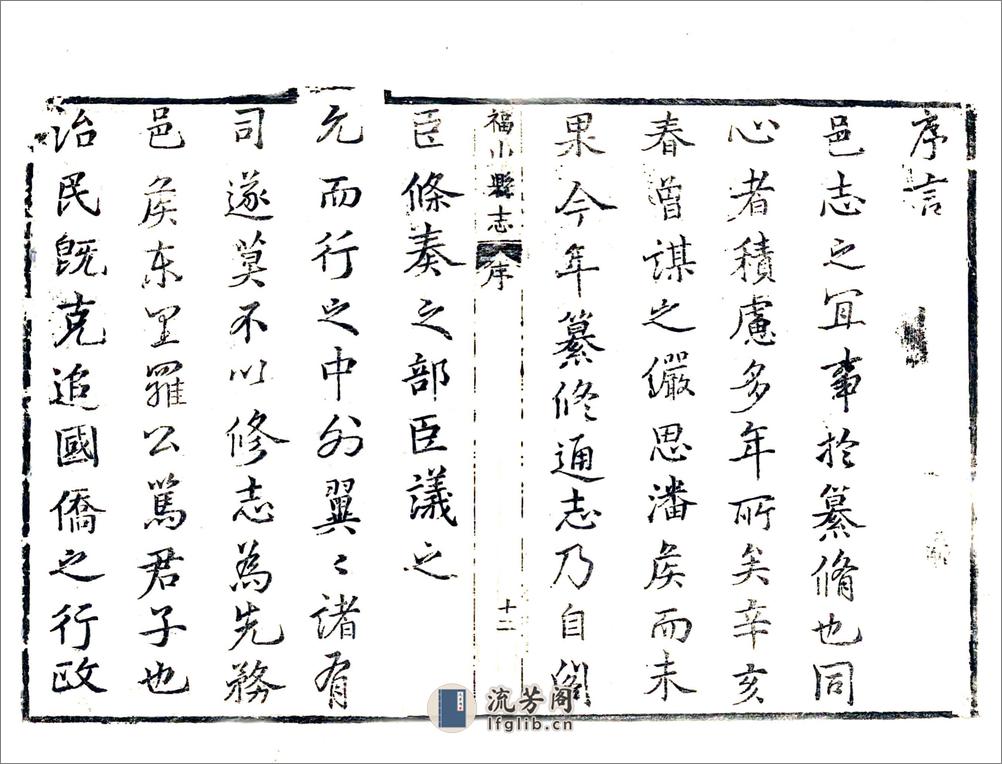 序言
邑志之宜事於纂脩也同
心者積慮多年所矣辛亥
春曾謀之儼思潘矦而未
果今年纂修通志乃自閣
福山縣志
序
十二
臣條奏之部臣議之
允而行之中外翼〻諸有
司遂莫不以修志為先務
邑矦东里羅公篤君子也
治民旣克追國僑之行政
流芳阁
lfglib.cn